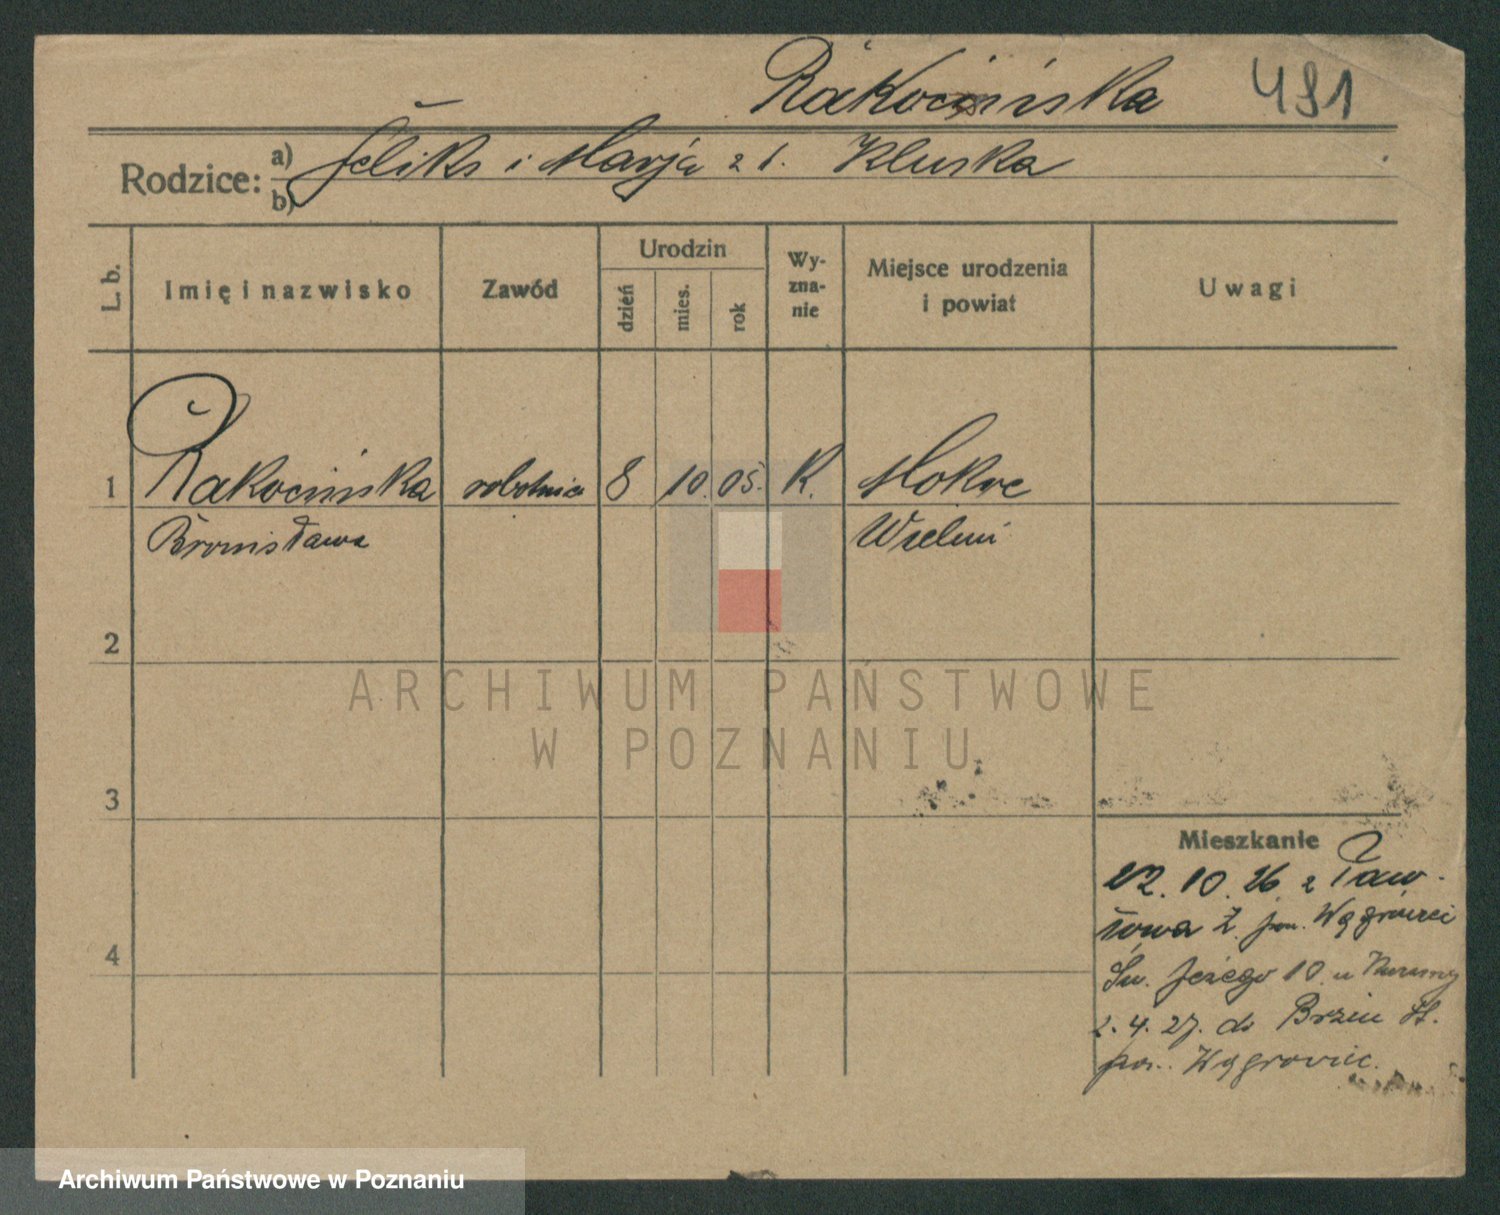 Rakocińska 491
Rodzice: a) Feliks i Marja z d. Kluska
b)
L. b. Imię i nazwisko Zawód Urodzin dzień mies. rok Wy-zna-nie Miejsce urodzenia i powiat Uwagi
1 Rakocińska robotnica 8 10. 05. K. Mokre
Bronisława Wieluń
2
3
4
Mieszkanie
22. 10. 26 z Paw-
łowa Ż. pow. Wągrówiec
Św. Jerzego 10 u
2. 4. 27. do st.
pow. Wągrowiec.
ARCHIWUM PAŃSTWOWE
W POZNANIU
Archiwum Państwowe w Poznaniu